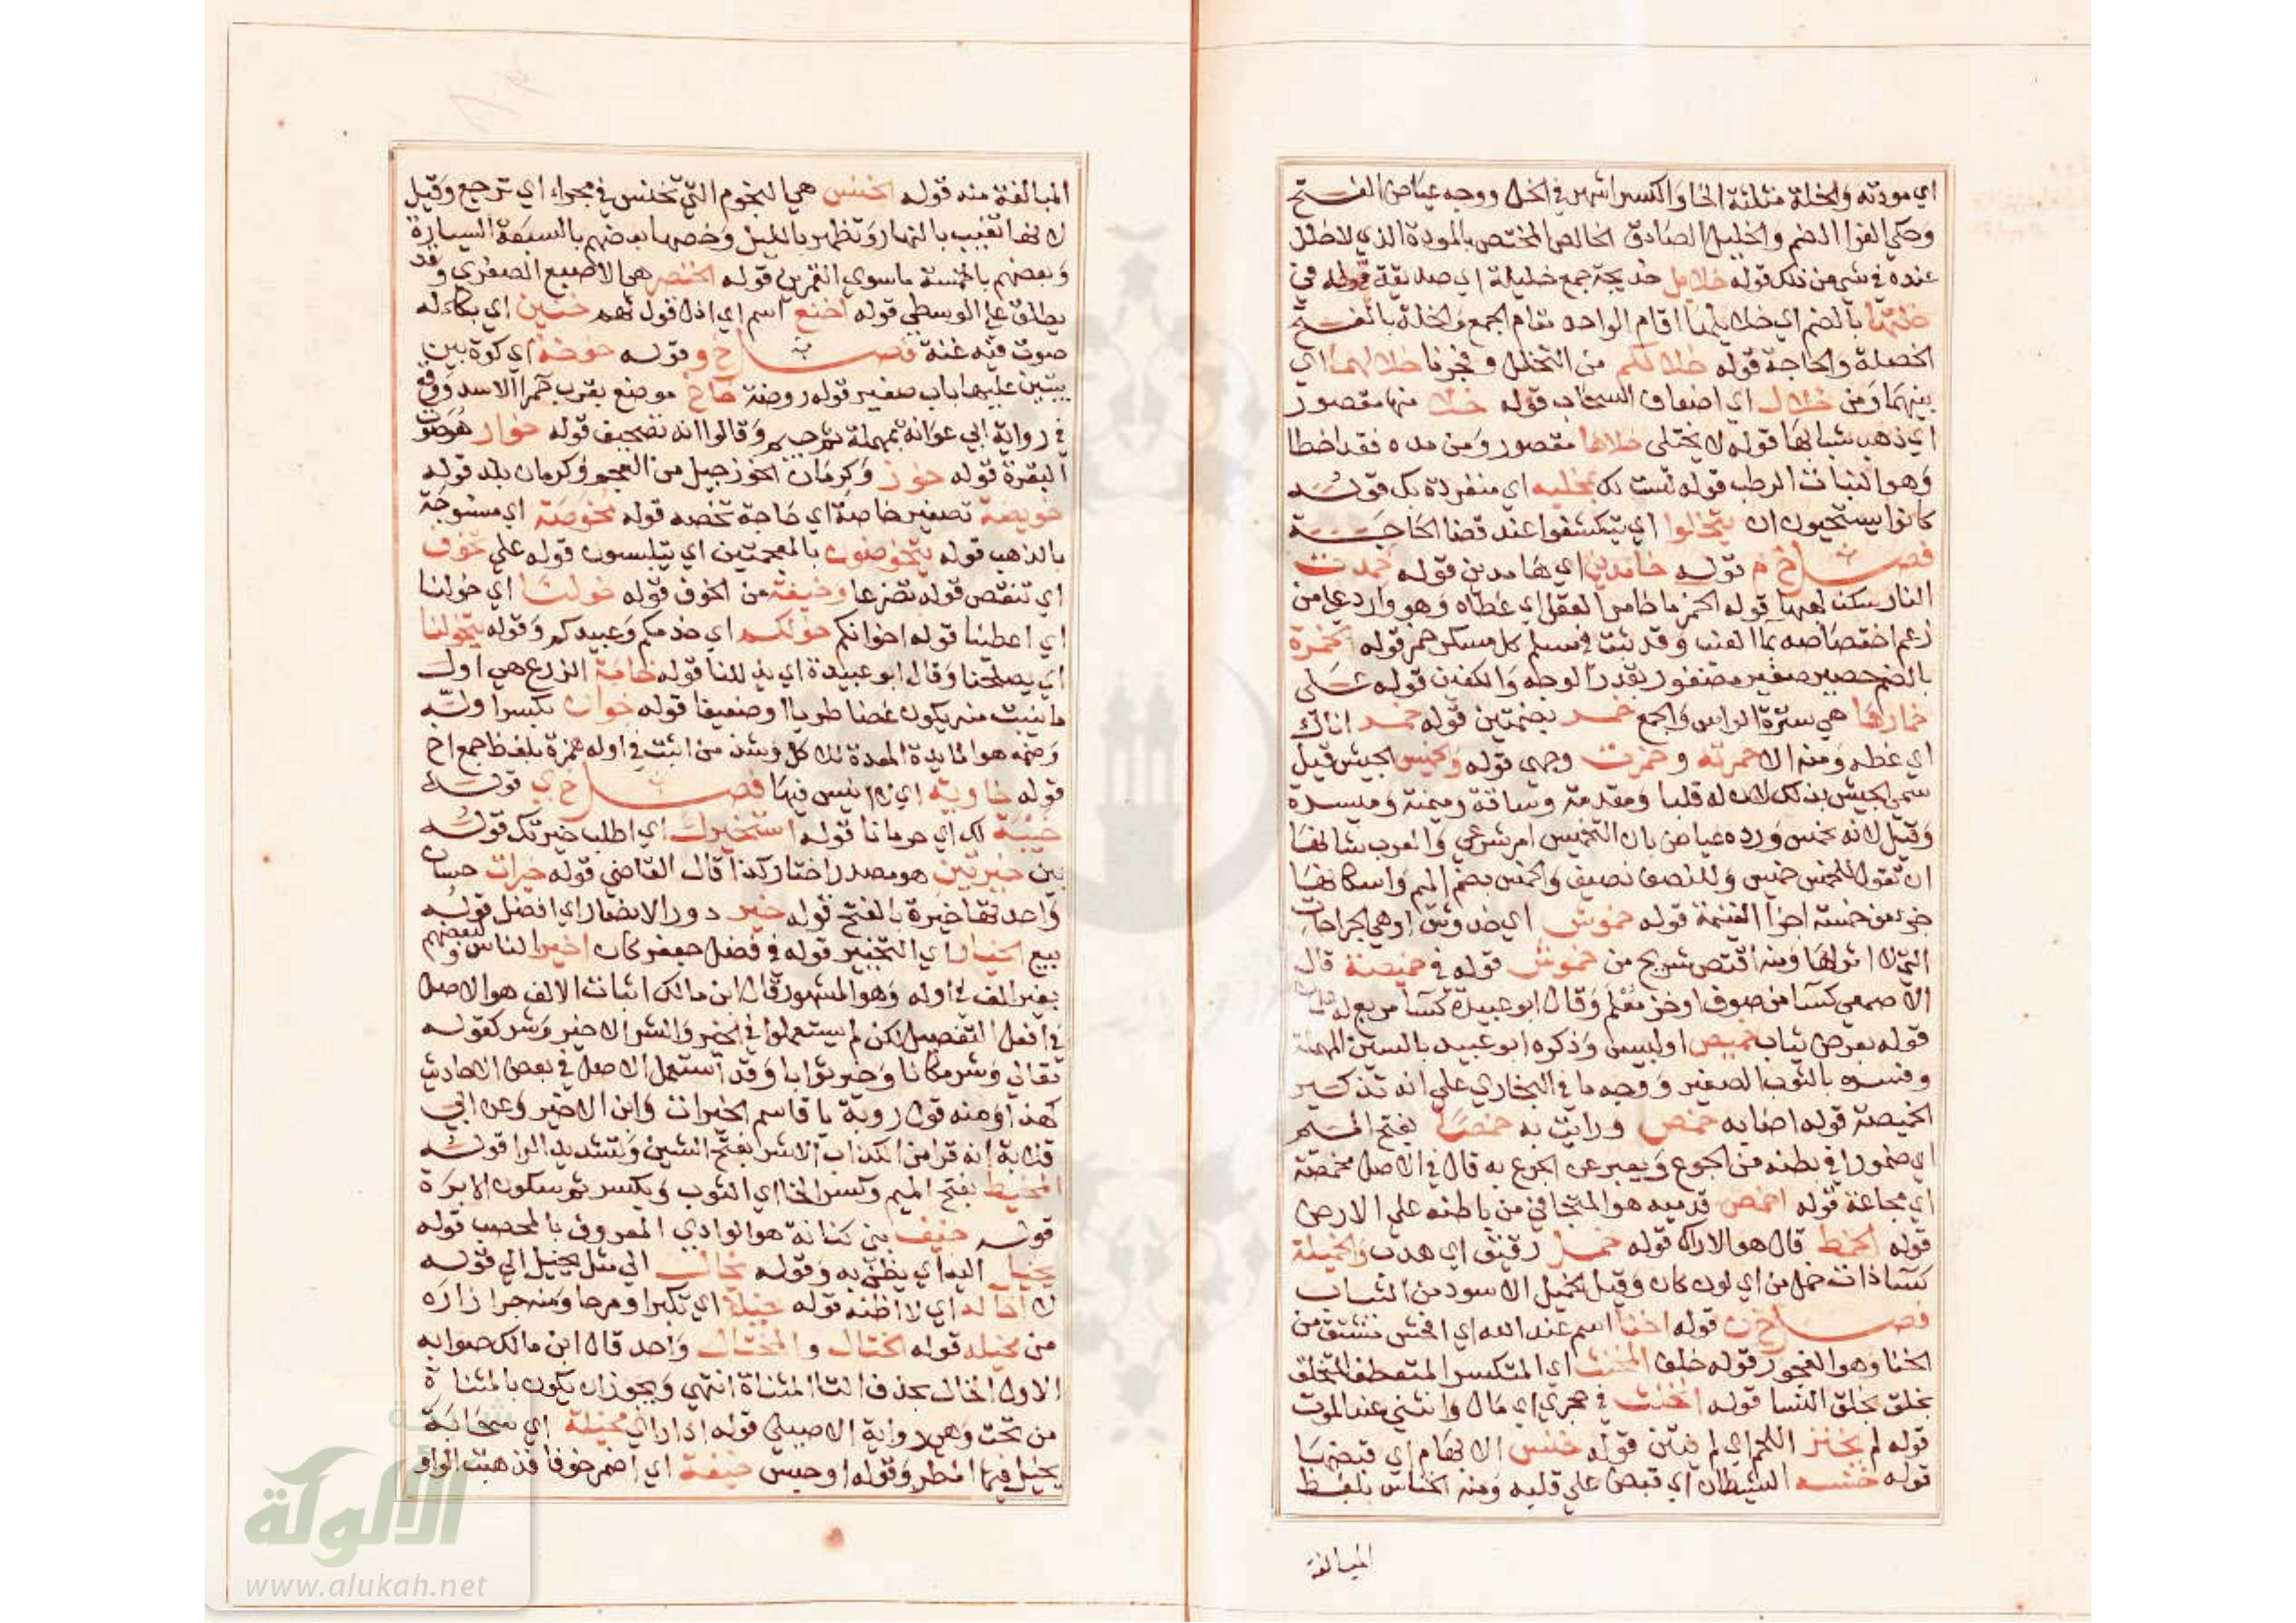 اي مودته والخلة مثلثة الخا والكسر اشهر في الخل ووجه عياض الفتح
وحكي الفرا الضم والخليل الصادق الخالص المختص بالمودة الذي لا خلل
عنده في شي من ذلك قوله خلايل خديجة جمع خليلة اي صديقة قوله في
خلتها بالضم اي خلايلها اقام الواحد مقام الجمع والخلة بالفتح
الخصلة والحاجة قوله خلالكم من التخلل وفجرنا خلالهما اي
بينهما ومن خلال اي اضعاف السحاب قوله خلا منها مقصور
اي ذهب شبابها قوله لا يختلى خلاها مقصور ومن مده فقد اخطا
وهو النبات الرطب قوله لست لك بمخلية اي منفردة بك قوله
كانوا يستحيون ان يتخلوا اي يتكشفوا عند قضا الحاجة
فصل خ م قوله خامدين اي هامدين قوله خمدت
النار سكن لهبها قوله الخمر ما خامر العقل اي غطاه وهو وارد علي من
زعم اختصاصه بما العنب وقد ثبت في مسلم كل مسكر خمر قوله الخمرة
بالضم حصير صغير مضفور بقدر الوجه والكفين قوله على
خمارها هي سترة الراس والجمع خمر بضمتين قوله خمر اناك
اي غطه ومنه الا خمرته وخمرت وجهي قوله والخميس الجيش قيل
سمي الجيش بذلك لان له قلبا ومقدمة وساقة وميمنة وميسرة
وقيل لانه يخمس ورده عياض بان التخميس امر شرعي والعرب شانها
ان تقول للخمس خميس وللنصف نصيف والخمس بضم الميم واسكانها
جزء من خمسة اجزا الغنيمة قوله خموش اي خدوش او هي الجراحات
التي لا اثر لها ومنه اقتص شريح من خموش قوله في خميصة قال
الاصمعي كسا من صوف او خز معلم وقال ابو عبيدة كسا مربع له علمان
قوله بعرض ثياب خميص او لبيس وذكره ابو عبيد بالسين المهملة
وفسره بالثوب الصغير ووجه ما في البخاري علي انه تذكير
الخميصة قوله اصابه خمص ورايت به خمصا بفتح الميم
اي ضمورا في بطنه من الجوع ويعبر عن الجوع به قال في الاصل مخمصة
اي مجاعة قوله اخمص قدميه هو المتجافي من باطنه علي الارض
قوله الخمط قال هو الاراك قوله خمل رقيق اي هدب والخميلة
كسا ذات خمل من اي لون كان وقيل الخميل الاسود من الثياب
فصل خ ن قوله اخنا اسم عند الله اي افحش مشتق من
الخنا وهو الفجور قوله خلف المخنث اي المتكسر المتعطف المتخلق
بخلق النسا قوله انخنث في حجري اي مال وانثنى عند الموت
قوله لم يخنز اللحم اي لم ينتن قوله خنس الابهام اي قبضها
قوله خنسه الشيطان اي قبض علي قلبه ومنه الخناس بلفظ
المبالغة
المبالغة منه قوله الخنس هي النجوم التي تخنس في مجراها اي ترجع وقيل
لانها تغيب بالنهار وتظهر بالليل وخصها بعضهم بالسبعة السيارة
وبعضهم بالخمسة ما سوي القمرين قوله الخنصر هي الاصبع الصغري وقد
يطلق علي الوسطي قوله اخنع اسم اي اذل قوله لهم خنين اي بكاء له
صوت فيه غنة فصل خ و قوله خوخة اي كوة بين
بيتين عليها باب صغير قوله روضة خاخ موضع بقرب حمرا الاسد ووقع
في رواية ابي عوانة بمهملة ثم جيم وقالوا انه تصحيف قوله خوار هو صوت
البقرة قوله خوز وكرمان الخوز جيل من العجم وكرمان بلد قوله
خويصة تصغير خاصة اي حاجة تخصه قوله مخوصة اي منسوجة
بالذهب قوله يتخوضون بالمعجمتين اي يتلبسون قوله علي تخوف
اي تنقص قوله تضرعا وخيفة من الخوف قوله خولنا اي خولنا
اي اعطينا قوله اخوانكم خولكم اي خدمكم وعبيدكم وقوله يتخولنا
اي يصلحنا وقال ابو عبيدة اي يذللنا قوله خامة الزرع هي اول
ما ينبت منه يكون غضا طريا او ضعيفا قوله خوان بكسر اوله
وضمه هو المايدة المعدة للاكل وشذ من اثبت في اوله همزة بلفظ جمع اخ
قوله خاوية اي لا انيس فيها فصل خ ي قوله
خيبة لك اي حرمانا قوله استخيرك اي اطلب خيرتك قوله
بين خيرتين هو مصدر اختار كذا قال القاضي قوله خيرات حسان
واحدتها خيرة بالفتح قوله خير دور الانصار اي افضل قوله
بيع الخيار اي التخيير قوله في فضل جعفر كان اخير الناس ولبعضهم
بغير الف في اوله وهو المشهور قال ابن مالك اثبات الالف هو الاصل
في افعل التفضيل لكن لم يستعملوا في الخير والشر الا خير وشر كقوله
تعالي وشر مكانا وخير ثوابا وقد استعمل الاصل في بعض الاحاديث
كهذا ومنه قول روبة يا قاسم الخيرات وابن الاخير وعن ابي
قلابة انه قرا من الكذاب الاشر بفتح الشين وتشديد الرا قوله
المخيط بفتح الميم وكسر الخا اي الثوب وبكسر ثم سكون الابرة
قوله خيف بني كنانة هو الوادي المعروف بالمحصب قوله
يخيل اليه اي يظن به وقوله يخال الي مثل يخيل الي قوله
لا اخاله اي لا اظنه قوله خيلا اي تكبرا ومرحا ومنه جر ازاره
من مخيلة قوله الختال والمختال واحد قال ابن مالك صوابه
الاول الخال بحذف التا المثناة انتهي ويجوز ان يكون بالمثناة
من تحت وهي رواية الاصيلي قوله اذا راي مخيلة اي سحابة
يخيل فيها المطر وقوله اوجس خيفة اي اضمر خوفا فذهبت الواو
شبكة
الألوكة
www.alukah.net